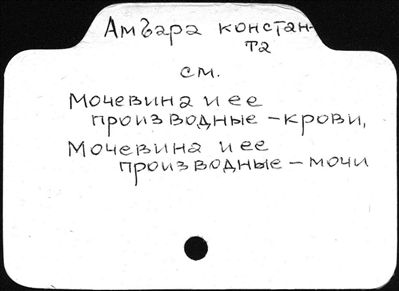 Амбара констан-
та
см.
Мочевина и ее
производные - крови,
Мочевина и ее
производные - мочи